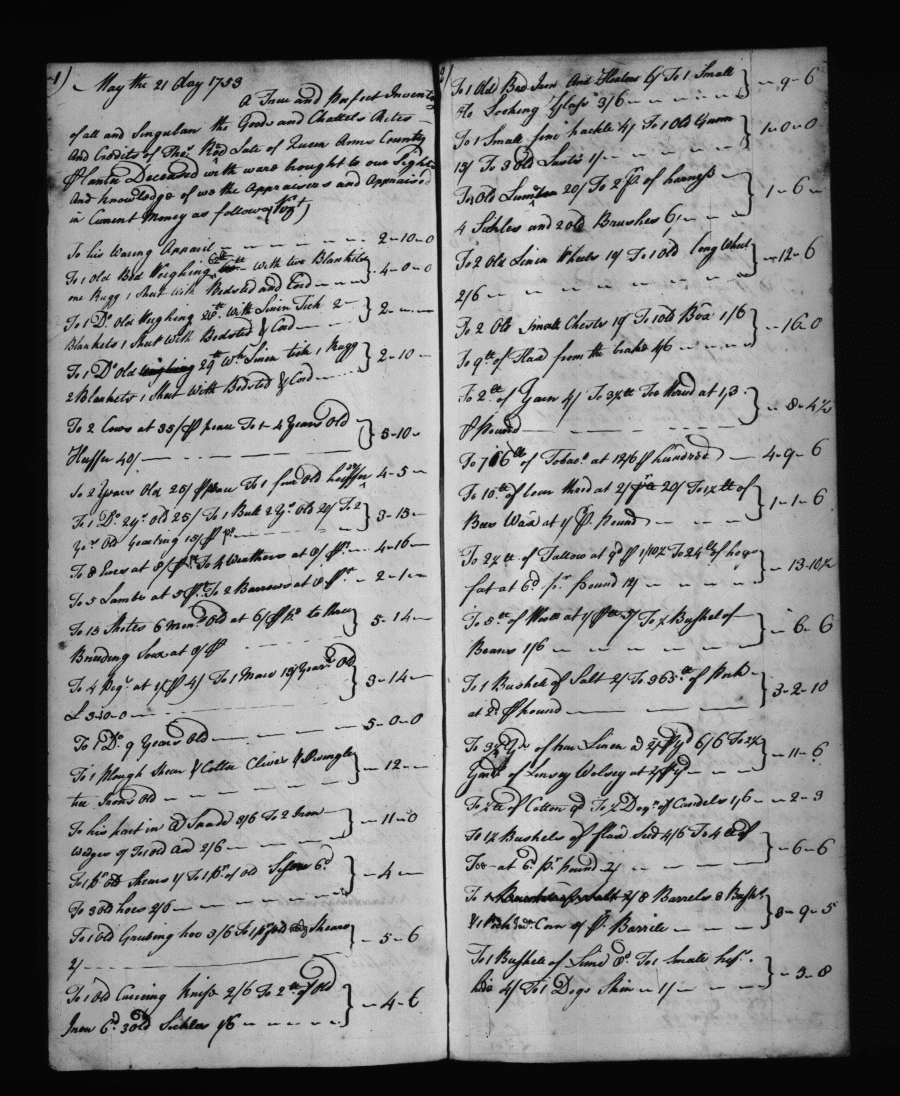 1)
May the 21 day 1753
A True and Perfect Inventory
of all and Singular the Goods and Chattels
And Credits of Thos. Rod Late of Queen Anns County
Planter Deceased with ware brought to our Sight
And Knowledge of we the Appraisers and Appraised
in Current Money as follows (Vizt)
To his Waring Apparil 2-10-0
To 1 Old Bed Weighing With two Blankits
one Rugg 1 Sheet With Bedsted and Cord 4-0-0
To 1 Do. Old Weighing With Linen Tick 2
Blankets 1 Sheet With Bedsted & Cord 2
To 1 Do Old weighing 29 tt Wth Linen tick 1 Rugg
2 Blankets 1 Sheet With Bedsted & Cord 2-10
To 2 Cows at 35/ To 1 4 Years Old
Heffer 40/ 5-10
To 2 Years Old 25/ To 1 four Old heiffer 4-5
To 1 Do. 2 yr. Old 25/ To 1 Bull 2 Yr. Old 20/ To 2
Yr. Old Yearling 15/ 3-15
To 8 Ewes at 8/ To 4 Weathers at 8/ 4-16
To 5 Lambs at 5/ To 2 Barrows at 8/ 2-1
To 15 Shotes 6 Mon. Old at 6/ to three
Breeding Sows at 8/ 5-14
To 4 Pigs at 1/ 4/ To 1 Mare 15 Years Old
£3-10-0 3-14
To 1 Do. 9 Years Old 5-0-0
To 1 Plough Shear & Colter Clives &
tree Irons Old 12
To his part in a Spade 3/6 To 2 Iron
Wedges To 1 Old 2/6 11-0
To 1 pr. Old Shears 1/ To 1 pr. of old 6d
To 3 Old hoes 2/6 4
To 1 Old Grubing hoe 3/6 To 1 Shears
2/ 5-6
To 1 Old Curriing Knife 2/6 To 2 tt of Old
Iron 6d. 3 Old Sickles 1/6 4-6
2)
To 1 Old Box Iron And Heaters 6/ To 1 Small
Do Looking Glass 3/6 9-6
To 1 Small fine hackle 4/ To 1 Old Gunn
15/ To 3 Old Lasts 1/ 1-0-0
To Old Lumber 20/ To 2 pr. of harness
4 Sickles and 2 old Brushes 6/ 1-6
To 2 Old Linen Wheels 10/ To 1 Old long Wheel
2/6 12-6
To 2 Old Small Chests 10/ To 1 Old Box 1/6
To 9 tt of Flax from the brake 4/6 16-0
To 2 tt of Yarn 4/ To 3½ tt Tow thred at 1/3
pound 8-4½
To 716 tt of Tobaco. at 12/6 hundred 4-9-6
To 10 tt of thred at 2/ 20/ To 1½ tt of
Bees Wax at 1/ Pound 1-1-6
To 2½ tt of Tallow at 9d 1/10½ To 24 tt of hogs
fat at 6d pr. pound 12/ 13-10½
To 5 tt of Wooll at 1/ 5/ To ½ Bushel of
Beans 1/6 6-6
To 1 Bushell of Salt 2/ To 365 tt of Pork
at 2d. pound 3-2-10
To 3¼ Yds of Linen a 2/ Yd 6/6 To 2½
Yards of Linsey Wolsey at 2/ Yd 11-6
To ½ tt of Cotton 9d To ½ Dozn. of Candels 1/6 2-3
To 1½ Bushels of flax Seed 4/6 To 4 tt of
Tow at 6d. pr pound 2/ 6-6
To 8 Barrels 3 Bushl.
& 1 Peck Corn Barrile 8-9-5
To 1 Bushell of Lime 8d. To 1 Small
hide 4/ To 1 Dogs Skin 1/ 5-8